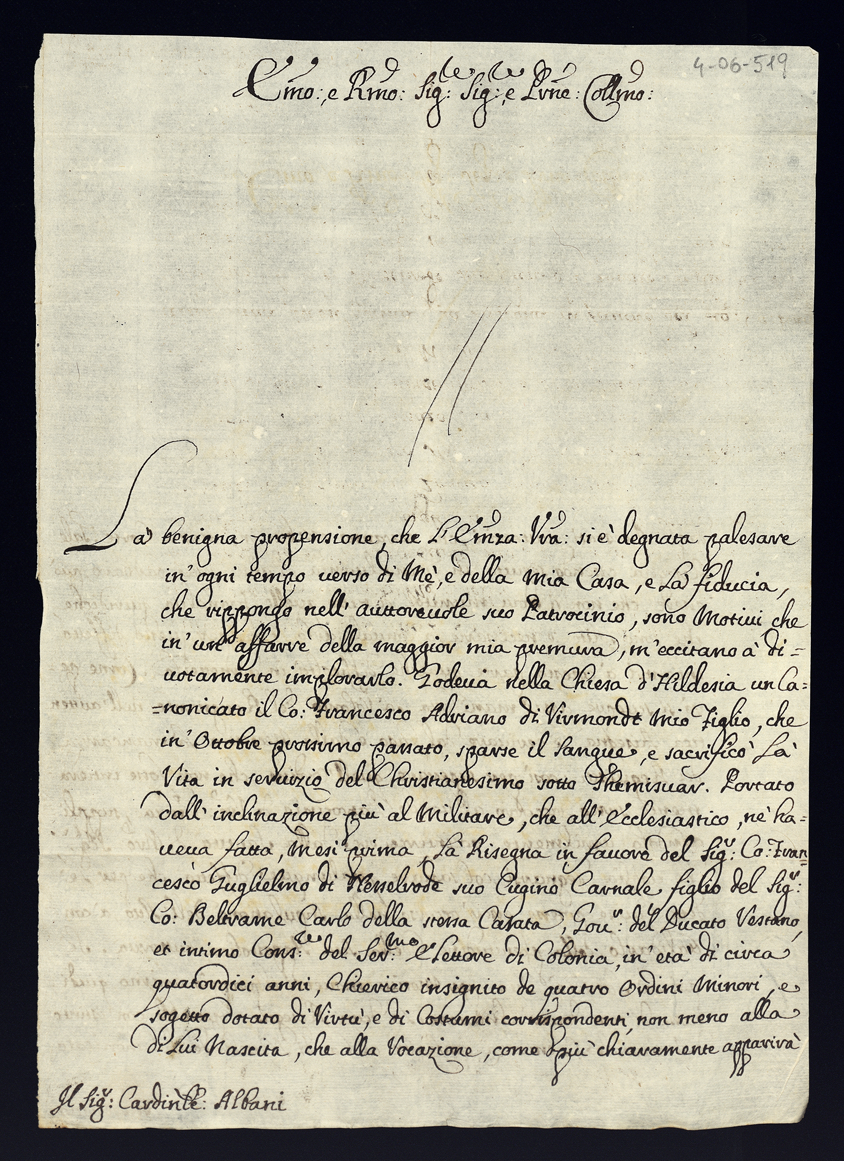 4-06-519
Emo: e Rmo: Sig:re Sig:re e Prne: Collmo:
La' benigna propensione, che L'Emza: Vra: si è degnata palesare
in' ogni tempo verso di Mè, e della mia Casa, e La fiducia,
che rippongo nell' auttorevole suo Patrocinio, sono Motivi che
in' un' affarre della maggior mia premura, m'eccitano à di=
votamente implorarlo. Godeva nella Chiesa d'Hildesia un Ca=
=nonicato il Co: Francesco Adriano di Virmondt Mio Figlio, che
in' Ottobre prossimo passato, sparse il sangue, e sacrificò La'
Vita in servizio del Christianesimo sotto Themisuar. Portato
dall' inclinazione più al Militare, che all' Ecclesiastico, nè ha=
veva fatta, Mesi prima, La' Risegna in favore del Sig:r Co: Fran=
cesco Guglielmo di Nesselrode suo Cugino Carnale figlio del Sig:r
Co: Beltrame Carlo della stessa Casata, Gov:r del Ducato Vestano,
et intimo Cons:re del Ser:mo Elettore di Colonia, in' età di circa
quatordici anni, Chierico insignito de quatro Ordini Minori, e
sogetto dotato di Virtù, e di Costumi corrispondenti non meno alla
di Lui Nascita, che alla Vocazione, come più chiaramente apparirà
Il Sig:r Cardinle: Albani